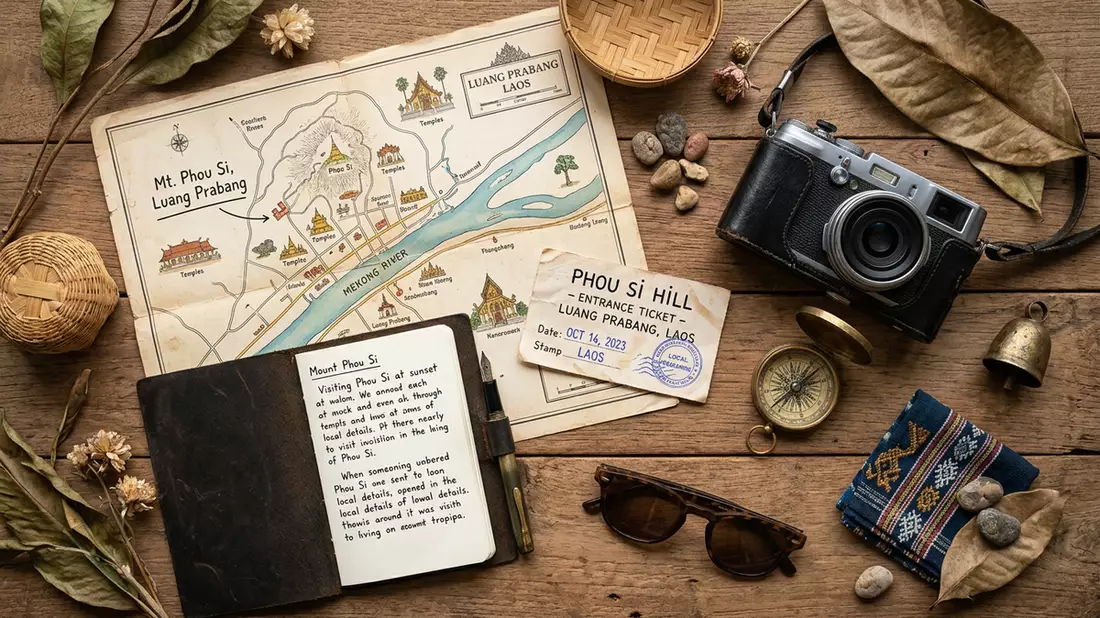 LUANG PRABANG
LAOS
Temples
Mt. Phou Si,
Luang Prabang
Phou Si
Temples
Temples
Temples
Temples
MEKONG RIVER
Luang Prabang
PHOU SI HILL
– ENTRANCE TICKET –
LUANG PRABANG, LAOS
Date: OCT 14, 2023
Stamp LAOS
LOCAL
Mount Phou Si
Visiting Phou Si at sunset
at walom. We annoad each
at mock and even ok through
templs and lwo at oms of
local details. Pt there nearly
to visit invoislion in the leing
of Phou Si.
When someoning unbered
Phou Si one sent to loon
local details, opened in the
local details of lowal details.
thowis around it was visith
to living on aowmt tropipa.